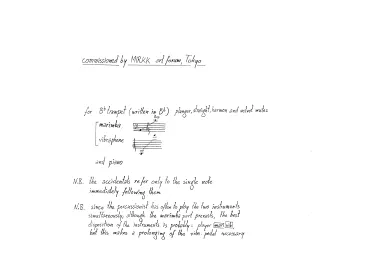 commissioned by MIRKK art forum, Tokyo
for B♭ trumpet (written in B♭) plunger, straight, harmon and velvet mutes
marimba
vibraphone
and piano
N.B. the accidentals refer only to the single note
immediately following them
N.B. since the percussionist has often to play the two instruments
simultaneously, although the marimba part prevails, the best
disposition of the instruments is probably: player
but this makes a prolonging of the vibr. pedal necessary